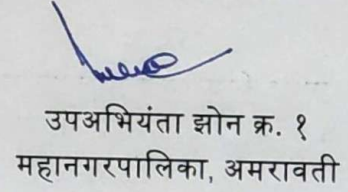 उपअभियंता झोन क्र. १
महानगरपालिका, अमरावती